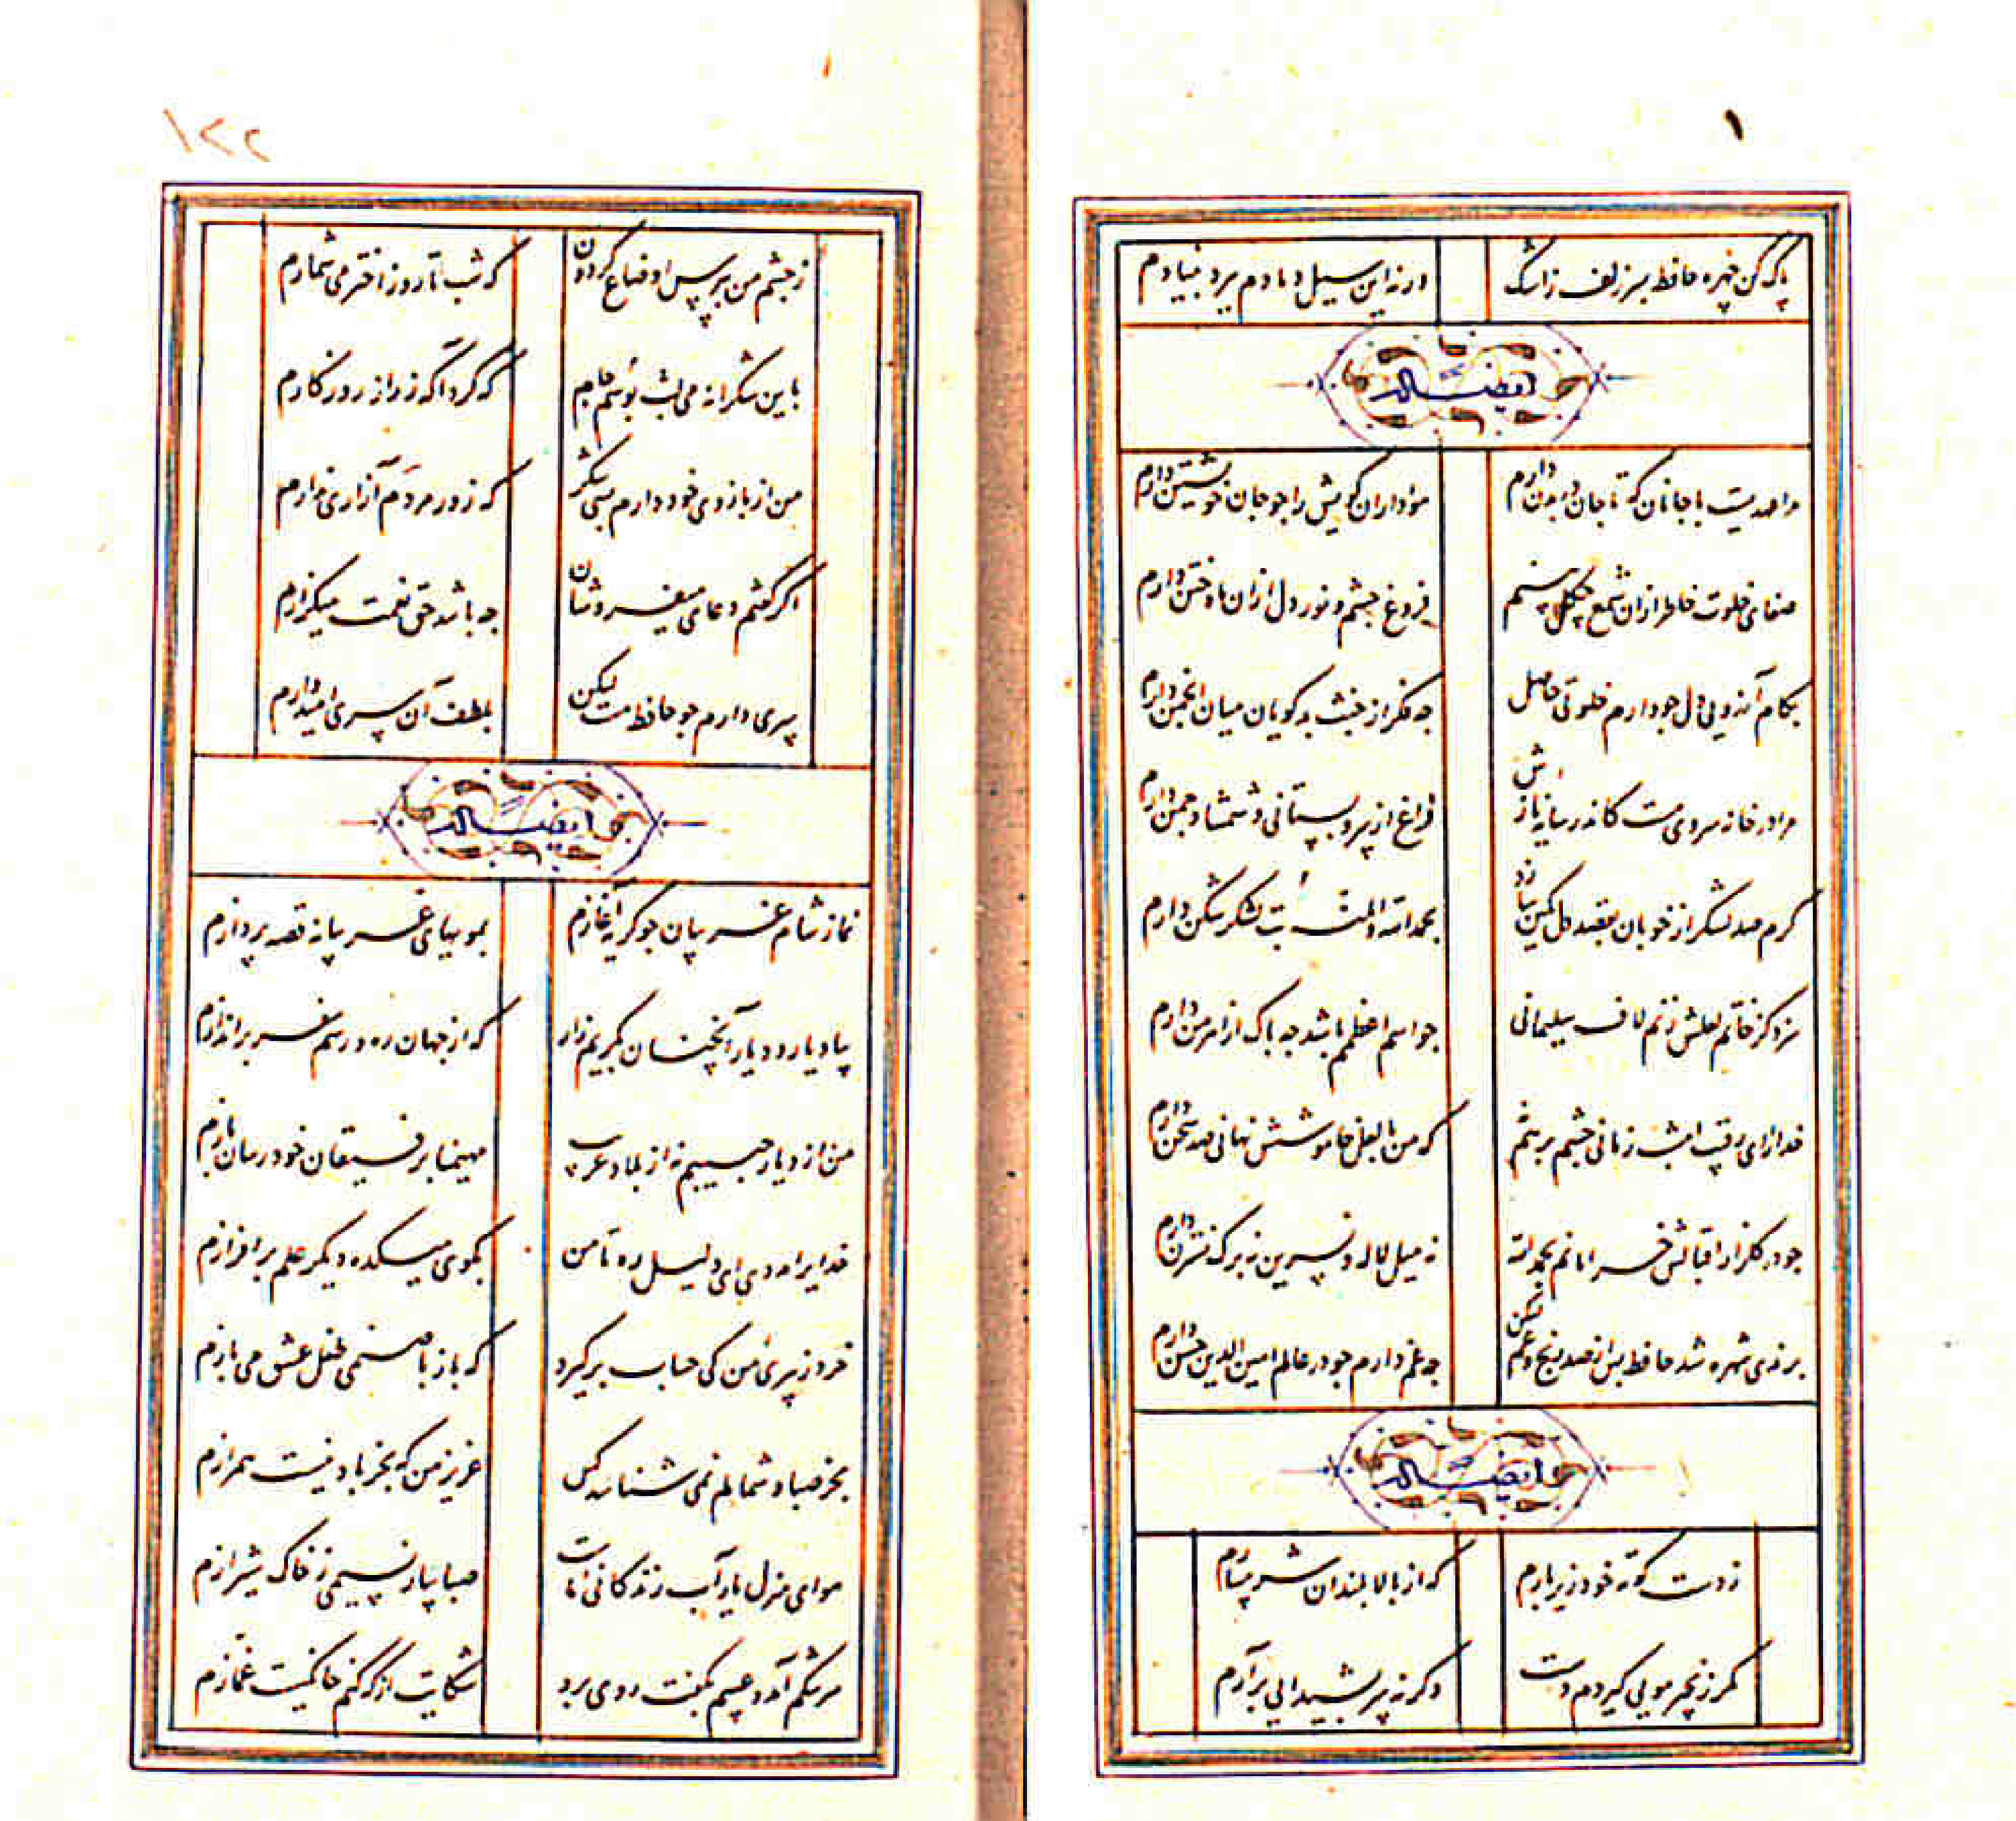 ۱
پاک کن چهره حافظ بسر زلف ز اشک ورنه این سیل دمادم ببرد بنیادم
ایضاً له
مرا عهدیست با جانان که تا جان در بدن دارم هواداران کویش را جو جان خویشتن دارم
صفای خلوت خاطر از ان شمع چکل بینم فروغ جشم و نور دل از ان ماه ختن دارم
بکام آرزویی دل جو دارم خلوتی حاصل جه فکر از خبث بدکویان میان انجمن دارم
مرا در خانه سروی هست کاندر سایه قدش فراغ از سرو بستانی و شمشاد جمن دارم
کرم صد لشکر از خوبان بقصد دل کمین سازد بحمد الله والمنه بت لشکر شکن دارم
سزد کز خاتم لعلش زنم لاف سلیمانی جو اسم اعظمم باشد جه باک از اهرمن دارم
خدا را ای رقیب امشب زمانی جشم بر هم که من با لعل خاموشش نهانی صد سخن دارم
جو در کلزار اقبالش خرامانم بحمد الله نه میل لاله و نسرین نه برک نسترن دارم
برندی شهره شد حافظ پس از صد رنج و غم لیکن جه غم دارم جو در عالم امین الدین حسن دارم
ایضاً له
ز دست کوته خود زیر بارم که از بالا بلندان شرمسارم
مکر زنجیر مویی کیردم دست وکرنه سر بشیدایی برآرم
۱۲۲
ز جشم من بپرس اوضاع کردون که شب تا روز اختر می شمارم
باین شکرانه می لب بوسم جام که کرد آکه ز راز روزکارم
من از بازوی خود دارم بسی شکر که زور مردم آزاری ندارم
اکر کفتم دعای میفروشان جه باشد حق نعمت میکزارم
سری دارم جو حافظ مست لیکن بلطف آن سری امیدوارم
ایضاً له
نماز شام غریبان جو کریه آغازم بمویهای غریبانه قصه پردازم
بیاد یار و دیار آنچنان بکریم زار که از جهان ره و رسم سفر براندازم
من از دیار حبیبم نه از بلاد غریب مهیمنا برفیقان خود رسان بازم
خدایرا مددی ای دلیل ره تا من بکوی میکده دیکر علم برافرازم
خرد ز پیری من کی حساب برکیرد که باز با صنمی طفل عشق می بازم
بجز صبا و شمالم نمی شناسد کس عزیز من که بجز باد نیست همرازم
هوای منزل یار آب زندکانی ماست صبا بیار نسیمی ز خاک شیرازم
سرشکم آمد و عیبم بکفت روی بروی شکایت از که کنم خانکیست غمازم